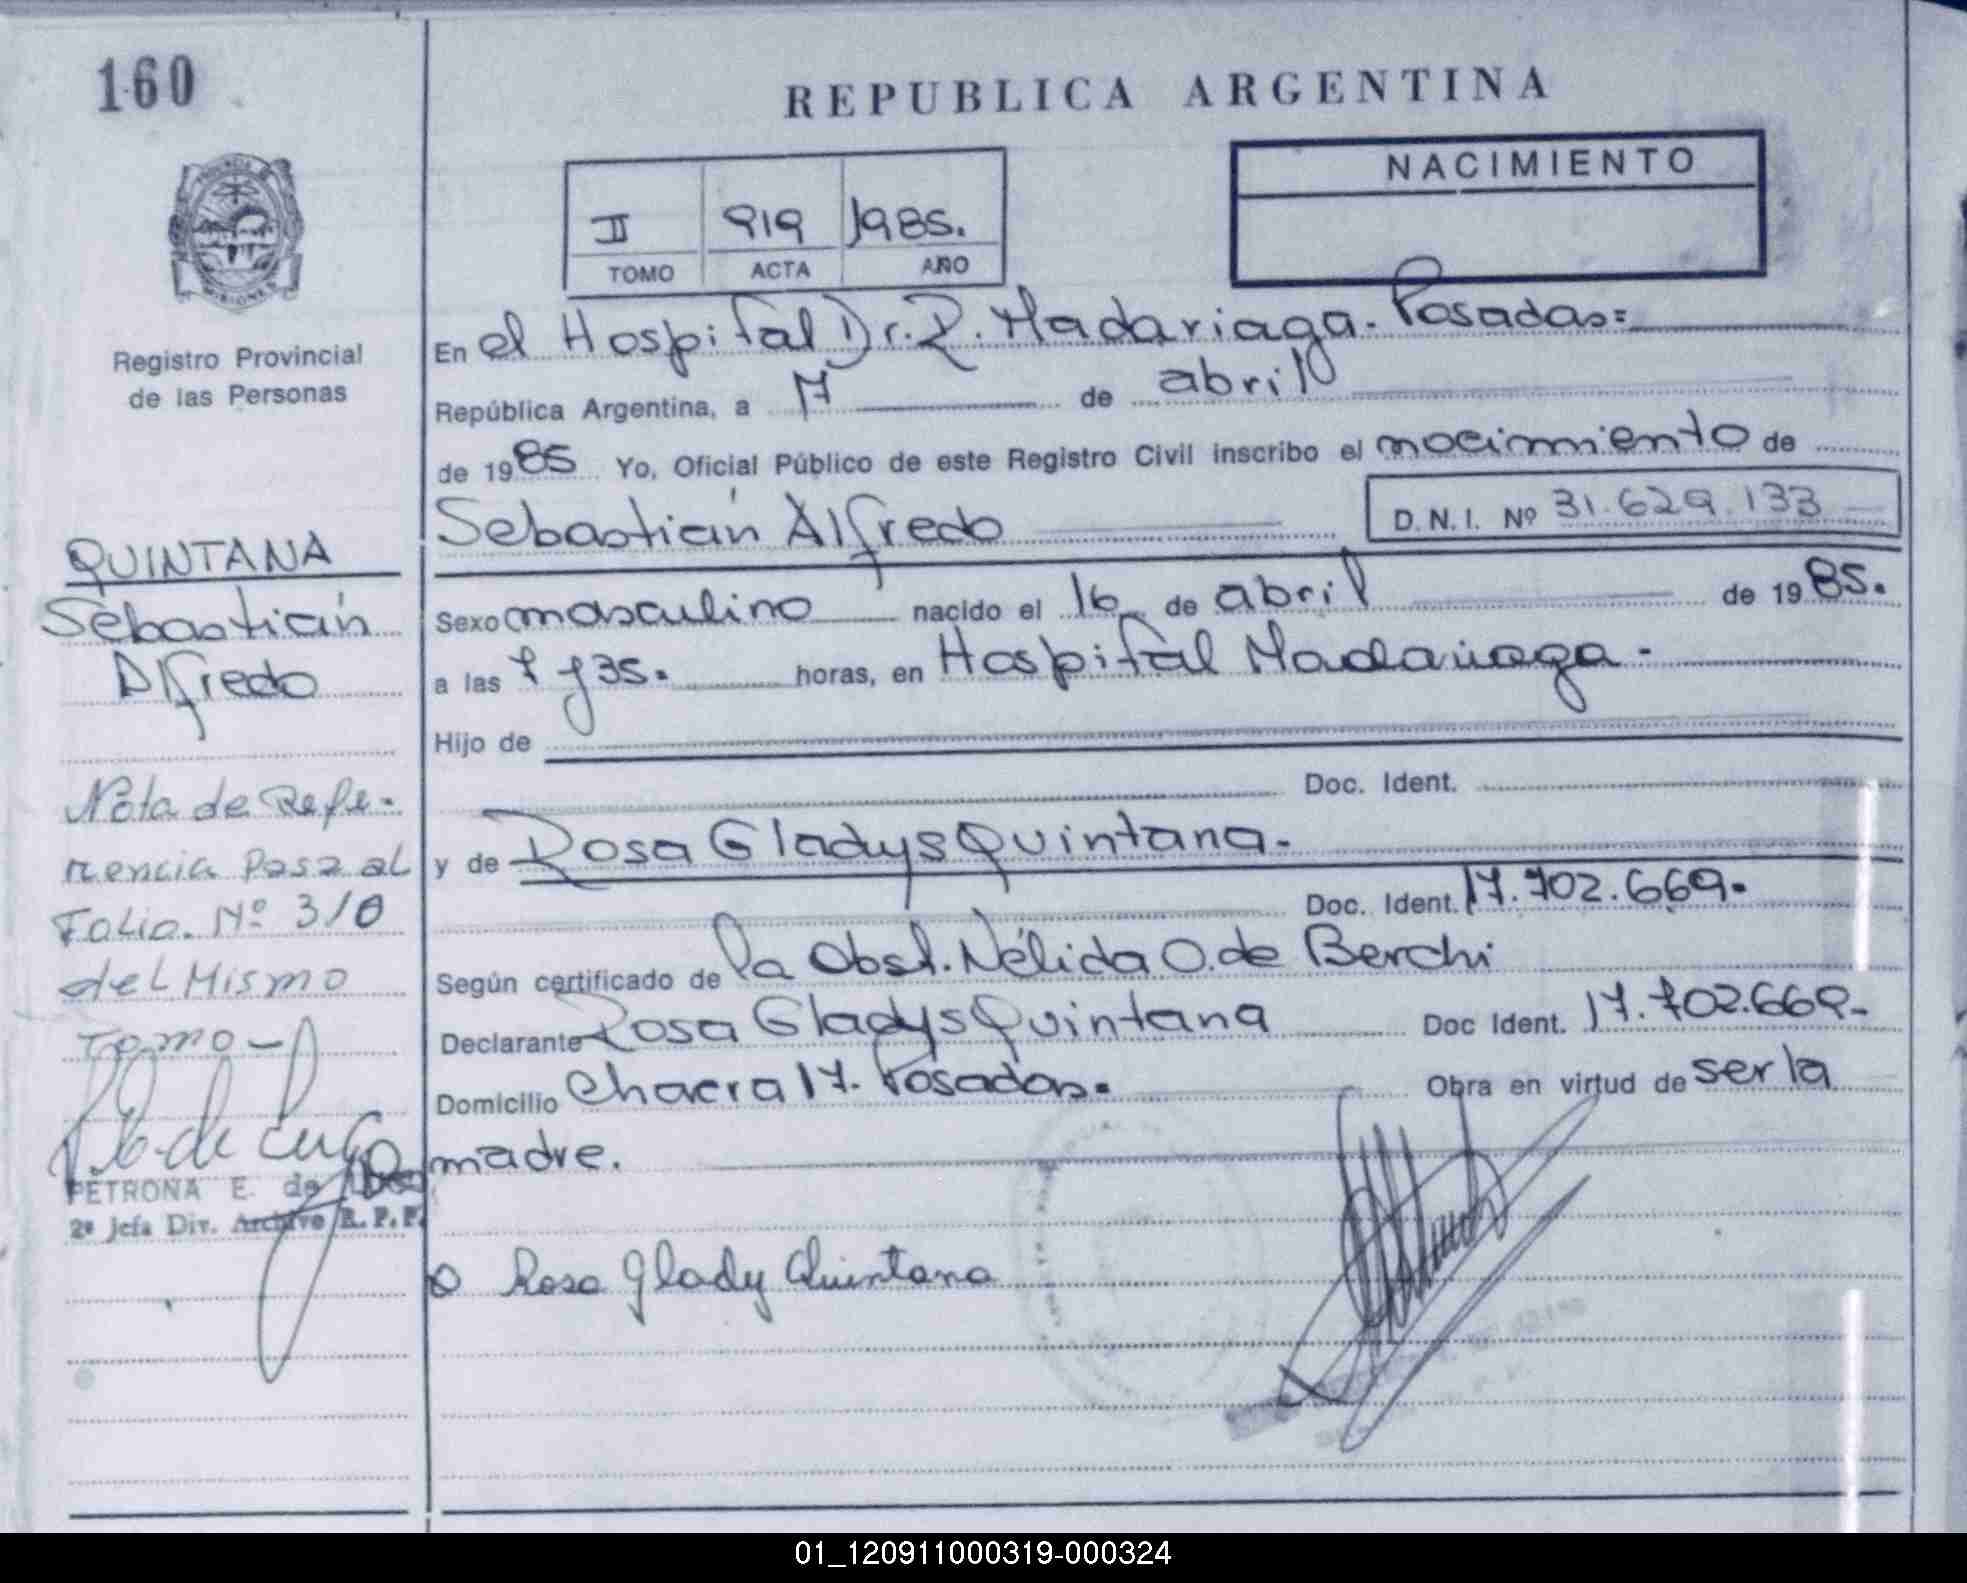 160
REPUBLICA ARGENTINA
NACIMIENTO
II 919 1985.
TOMO ACTA AÑO
MISIONES
Registro Provincial
de las Personas
En el Hospital Dr. R. Madariaga. Posadas=
República Argentina, a 17 de abril
de 1985 Yo, Oficial Público de este Registro Civil inscribo el nacimiento de
Sebastián Alfredo D.N.I. Nº 31.629.133
QUINTANA
Sebastián
Alfredo
Sexo masculino nacido el 16 de abril de 1985.
a las 7 y 35. horas, en Hospital Madariaga.
Hijo de
Doc. Ident.
y de Rosa Gladys Quintana.
Doc. Ident. 17.702.669.
Según certificado de la Obst. Nélida O. de Berchi
Declarante Rosa Gladys Quintana Doc Ident. 17.702.669-
Domicilio Chacra 17. Posadas. Obra en virtud de ser la
madre.
Nota de Refe-
rencia Pasa al
Folio. Nº 310
del Mismo
Tomo-
PETRONA E. de
2ª Jefa Div. Archivo R. P. P.
Rosa Glady Quintana
01_120911000319-000324